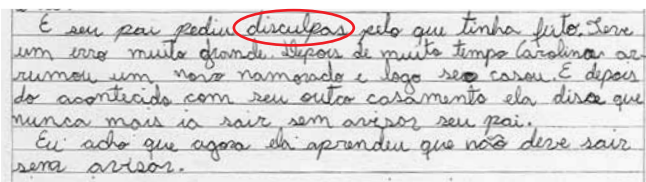 E seu pai pediu disculpas pelo que tinha feito. Teve
um erro muito grande. Depois de muito tempo Carolina ar-
rumou um novo namorado e logo se casou. E depois
do acontecido com seu outro casamento ela disse que
nunca mais ia sair sem avisar seu pai.
Eu acho que agora ela aprendeu que não deve sair
sem avisar.